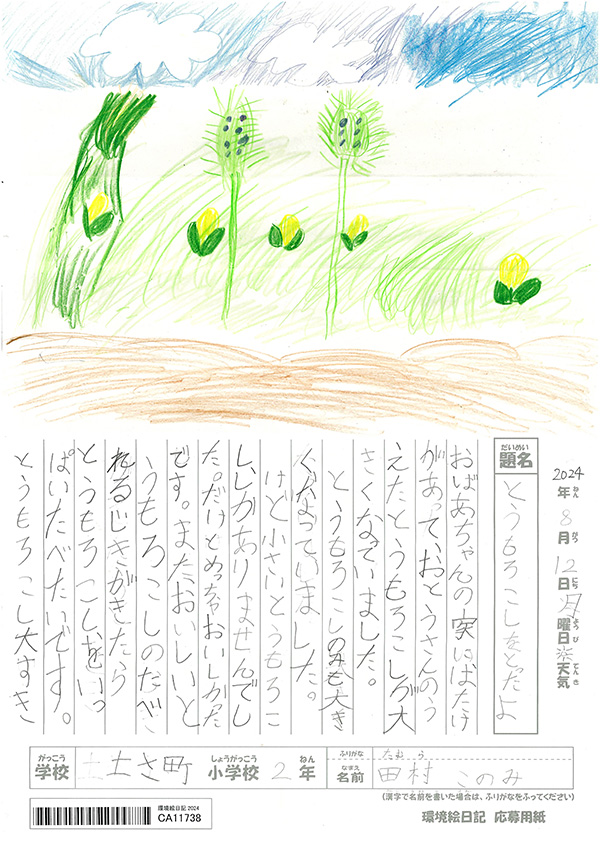 2024年8月12日月曜日 天気
ねん がつ にち ようび てんき
だいめい
題名
とうもろこしをとったよ
おばあちゃんの実にはたけ
があって、おとうさんのう
えたとうもろこしが大
きくなっていました。
とうもろこしのみも大き
くなっていました。
けど小さいとうもろこ
ししかありませんでし
た。だけどめっちゃおいしかった
です。またおいしいと
うもろこしのたべ
れるじきがきたら
とうもろこしをいっ
ぱいたべたいです。
とうもろこし大すき
がっこう しょうがっこう ねん
学校 土さ町 小学校 2年
ふりがな たむら
なまえ
名前 田村 このみ
(漢字で名前を書いた場合は、ふりがなをふってください)
環境絵日記 2024
CA11738
環境絵日記 応募用紙